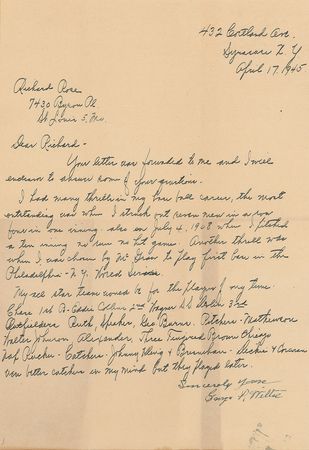 432 Cortland Ave.
Syracuse N.Y
April 17, 1945
Richard Rose
7430 Byron Pl.
St Louis 5, Mo.
Dear Richard -
Your letter was forwarded to me and I will
endeavor to answer some of your questions.
I had many thrills in my base ball career, the most
outstanding was when I struck out seven men in a row
four in one inning. also on July 4, 1908 when I pitched
a ten inning no run no hit game. Another thrill was
when I was chosen by Mc Graw to play first base in the
Philadelphia - N.Y. World Series.
My all star team would be for the players of my time
Chase 1st B. Eddie Collins 2nd Wagner SS 3rd
Outfielders Ruth, Speker, Geo Burns. Pitchers - Mathewson
Walter Johnson, Alexander, Three Fingered Brown Chicago
Catchers - Johnny Kling & Bresnahan -
were better catchers in my mind but they played later.
Sincerely Yours
George Wiltse